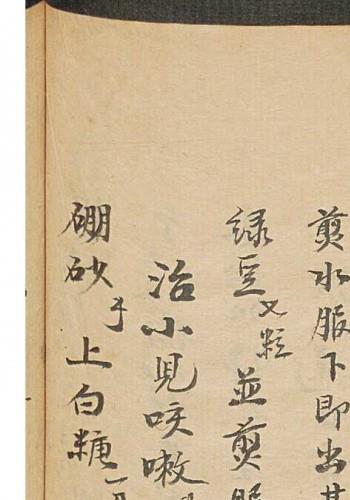 剪水服下即出其
綠豆七粒並剪服
治小児咳嗽
硼砂 上白糖一